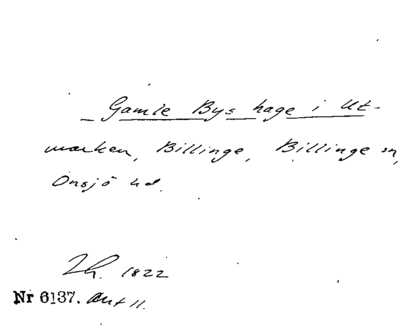 Gamle Bys hage i Ut-
marken, Billinge, Billinge sn,
Onsjö hd.
1822
Nr 6137. Akt 11.